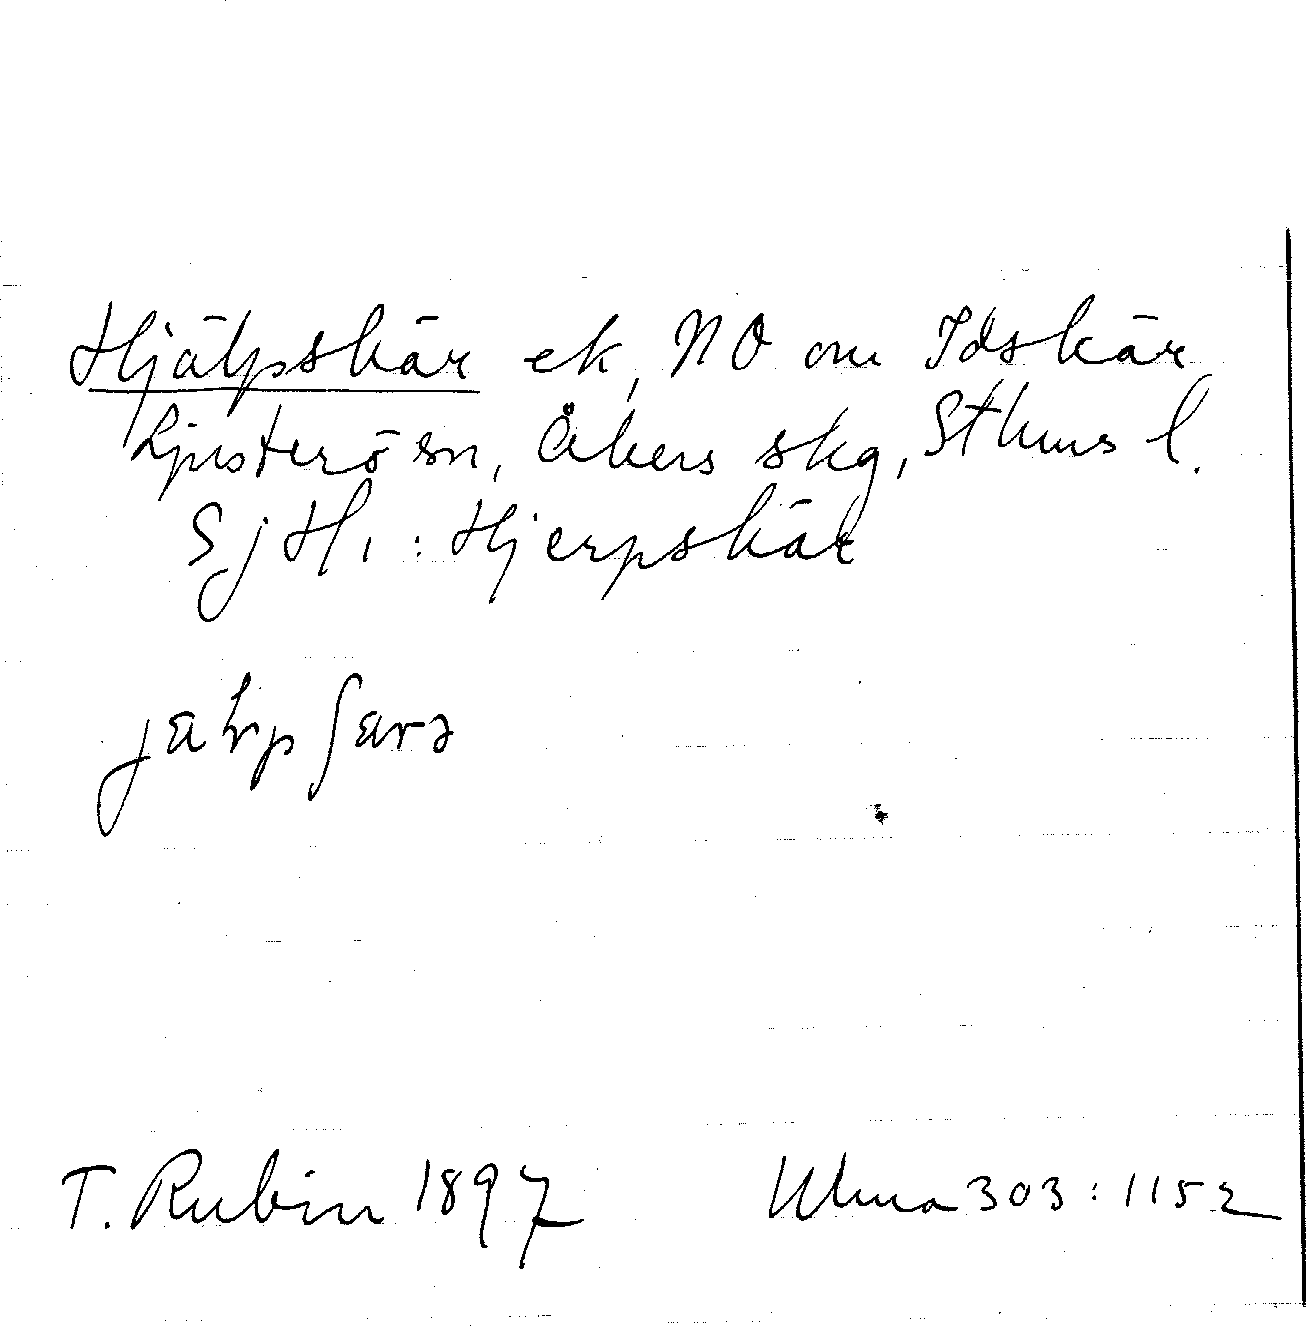 Hjälpskär ek, NO om Idskär
Ljusterö sn, Åkers skg, Sthms l.
SjH1: Hjerpskär
T. Rubin 1897 Ulma 303:1152